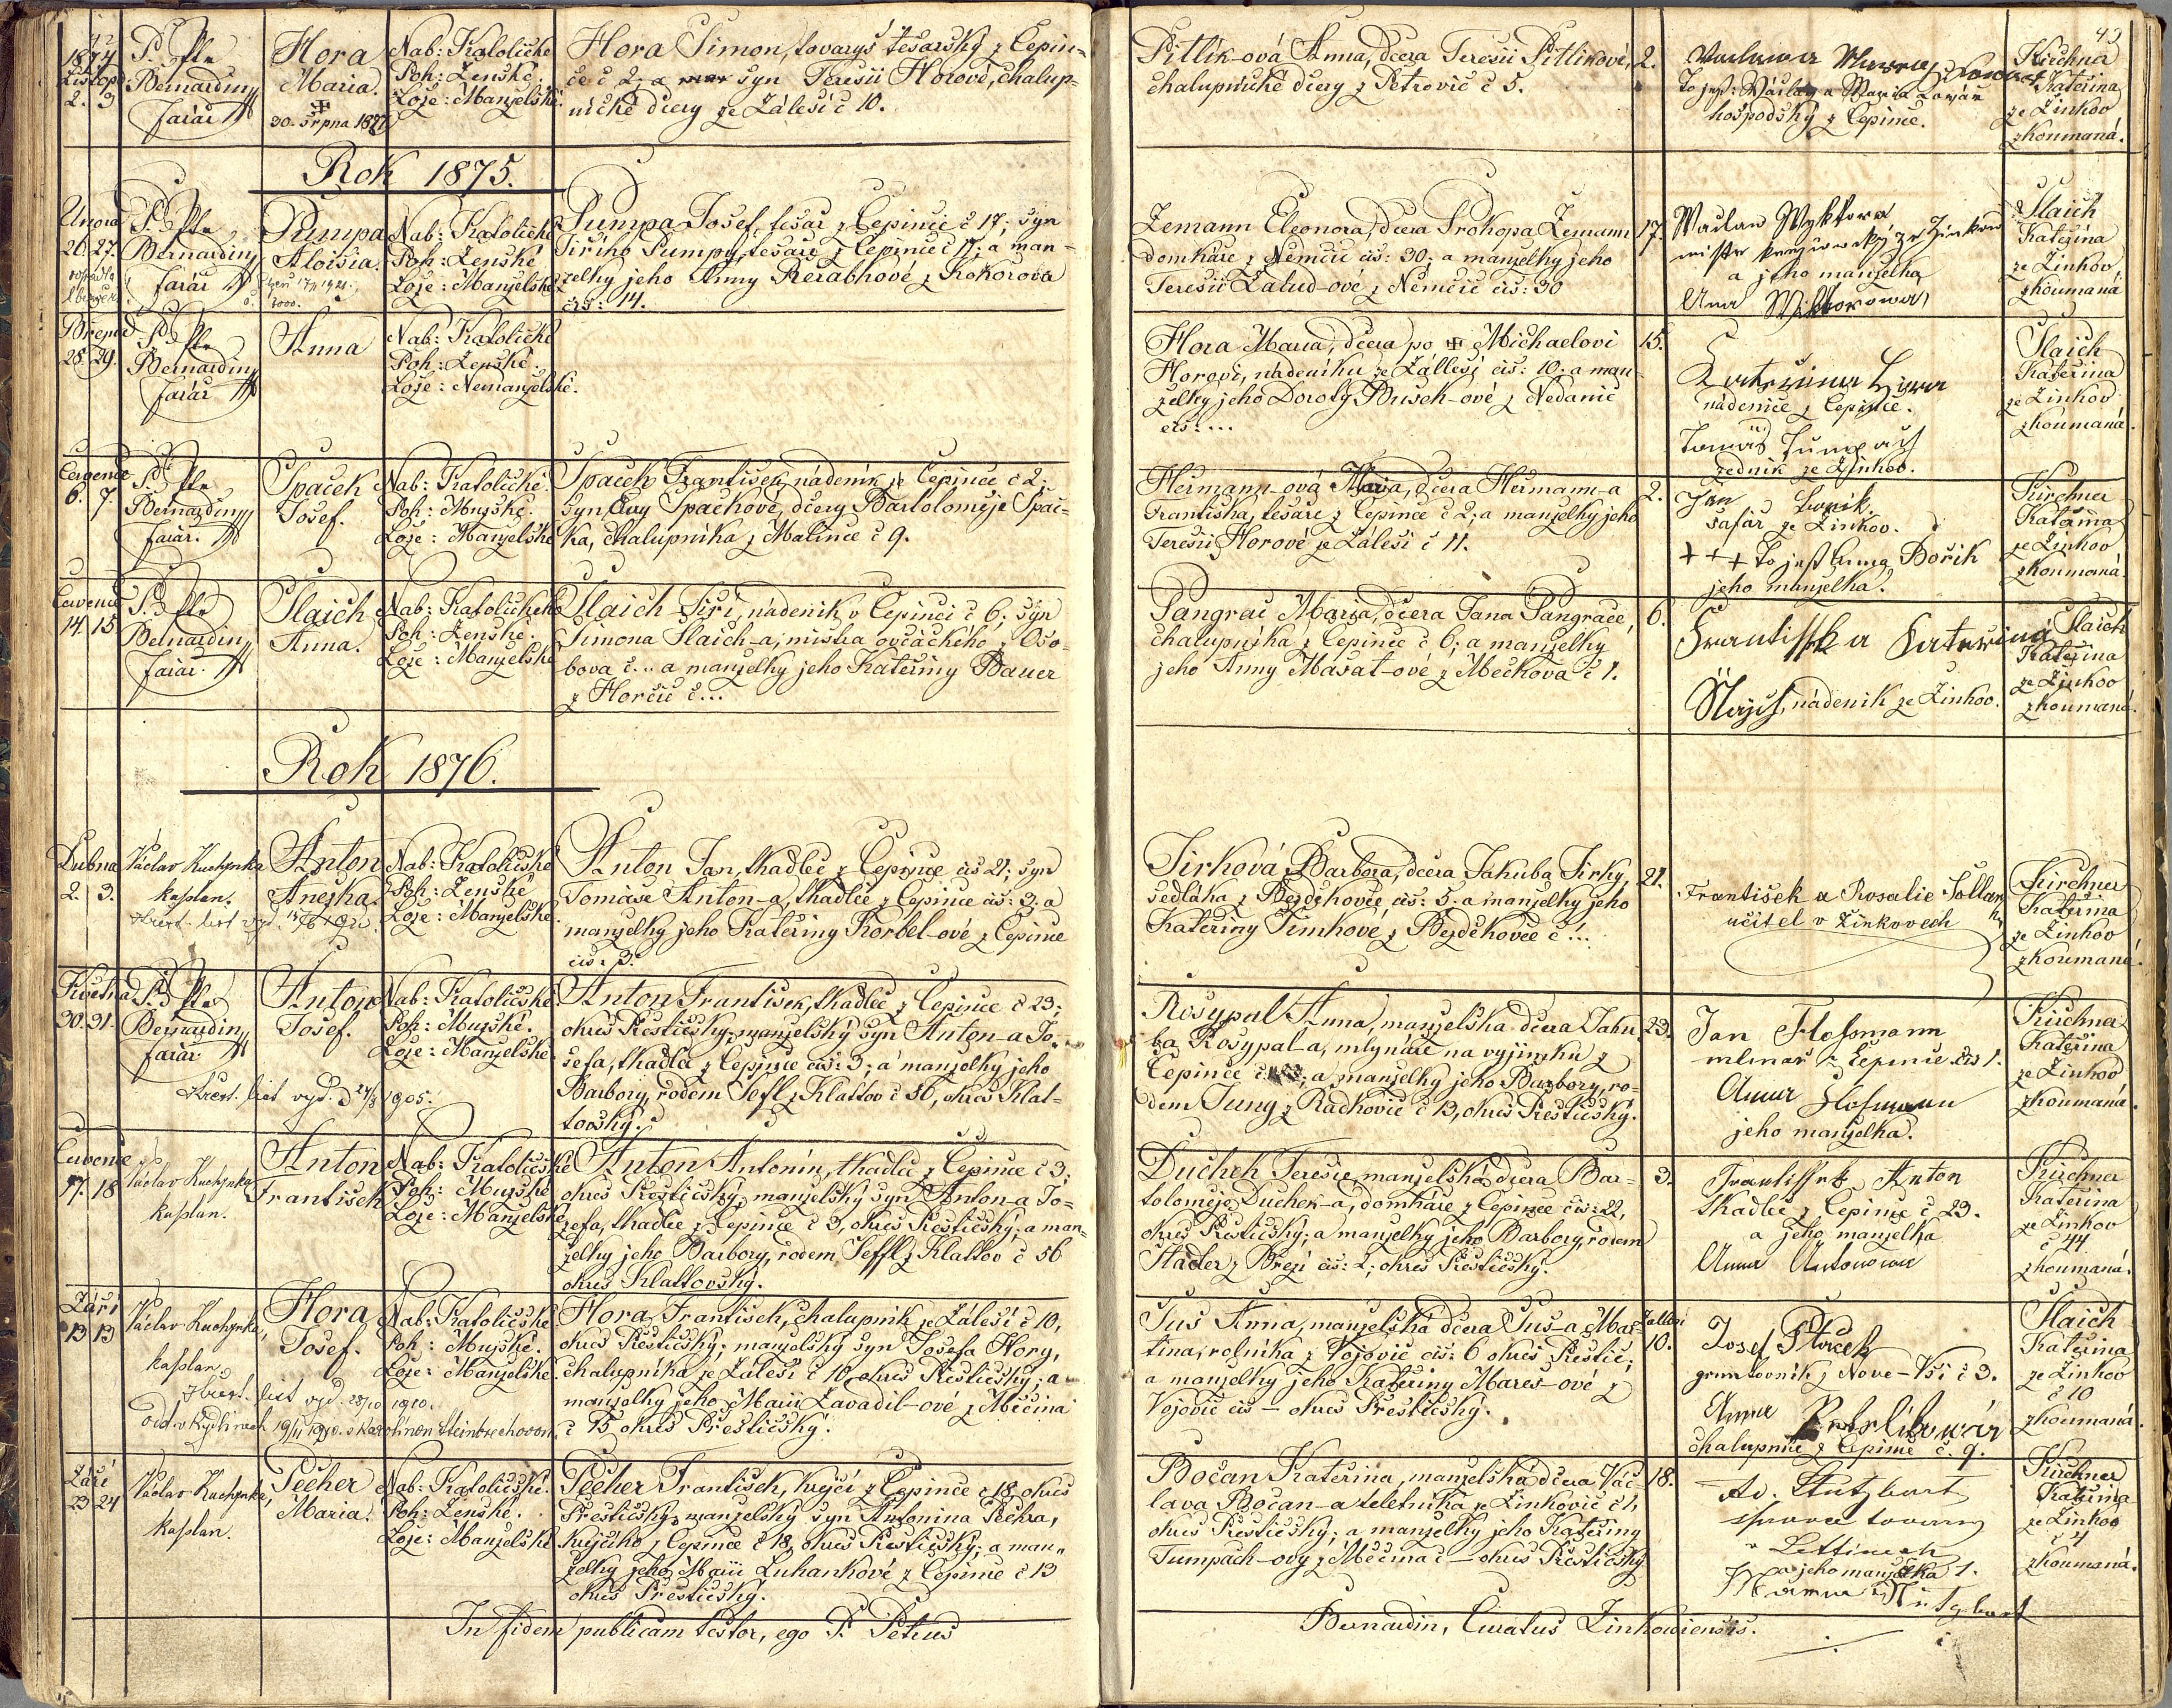 42
1874
Listopd
2. 3
P. Petr
Bernardin,
farář
Hora
Maria.
30. srpna 1877
Nab: Katolické
Poh: Ženské.
Lože: Manželské.
Hora Šimon, tovaryš tesařský z Čepin-
ce č 2; a syn Teresii Horové, chalup-
nické dcery ze Zálesí č 10.
Rok 1875.
Února
26. 27.
P. Petr
Bernardin,
farář
Pumpa
Aloisia.
Nab: Katolické
Poh: Ženské
Lože: Manželské
Pumpa Josef, tesař z Čepinci č 17; syn
Jiřího Pumpy, tesaře z Čepince č 17; a man-
želky jeho Anny Reřabkové z Kokořova
čís: 14.
Března
28. 29.
P. Petr
Bernardin,
farář
Anna
Nab: Katolické
Poh: Ženské.
Lože: Nemanželské.
Července
6. 7.
P. Petr
Bernardin,
farář.
Špaček
Josef.
Nab: Katolické.
Poh: Mužské.
Lože: Manželské
Špaček František, nádeník z Čepince č 2;
syn Evy Špačkové, dcery Bartoloměje Špač-
ka, chalupníka z Malince č 9.
Července
14. 15.
P. Petr
Bernardin,
farář.
Šlaich
Anna.
Nab: Katolického
Poh: Ženské.
Lože: Manželské
Šlaich Jiří, nádeník v Čepinci č 6; syn
Šimona Šlaich-a, mistra ovčáckého z Oso-
bova č... a manželky jeho Kateřiny Bauer
z Horčic č...
Rok 1876.
Dubna
2. 3.
Václav Kuchynka
kaplan.
Anton
Anežka.
Nab: Katolické
Poh: Ženské
Lože: Manželské
Anton Jan, tkadlec z Čepince čis 21; syn
Tomáše Anton-a, tkadlce z Čepince čis: 3. a
manželky jeho Kateřiny Korbel-ové z Čepince
čis: 3.
Května
30. 31.
P. Petr
Bernardin,
farář
Anton
Josef.
Nab: Katolické.
Poh: Mužské.
Lože: Manželské
křest. list vyd. 24/8 1905.
Anton František, tkadlec z Čepince č 23;
okres Přeštický, manželský syn Anton-a Jo-
sefa, tkadlce z Čepince čis: 3; a manželky jeho
Barbory, rodem Seffl z Klattov č 56, okres Klat-
tovský.
Července
17. 18
Václav Kuchynka
kaplan.
Anton
František
Nab: Katolické
Poh: Mužské
Lože: Manželské
Anton Antonín, tkadlec z Čepince č 3;
okres Přeštický, manželský syn Anton-a Jo-
sefa, tkadlce z Čepince č 3, okres Přeštický; a man-
želky jeho Barbory, rodem Seffl z Klattov č 56
okres Klattovský.
Září
13 13
Václav Kuchynka,
kaplan.
Hora
Josef.
Nab: Katolické.
Poh: Mužské.
Lože: Manželské.
křest. list vyd. 28/10 1910.
Hora František, chalupník ze Zálesí č 10,
okres Přeštický; manželský syn Josefa Hory,
chalupníka ze Zálesí č 10, okres Přeštický; a
manželky jeho Marii Zavadil-ové z Měčína
č 15 okres Přeštický.
Září
23 24
Václav Kuchynka,
kaplan.
Pecher
Maria.
Nab: Katolické.
Poh: Ženské.
Lože: Manželské
Pecher František, krejčí z Čepince č 18, okres
Přeštický, manželský syn Antonína Pechra,
krejčího z Čepince č 18, okres Přeštický; a man-
želky jeho Marii Luhankové z Čepince č 13
okres Přeštický.
In fidem publicam testor, ego P. Petrus
43
Pitlik-ová Anna, dcera Teresii Pitlikové,
chalupnické dcery z Petrovic č 5.
2.
To jest: Václav a Maria
hospodský z Čepince.
Kirchna
Kateřina
ze Žinkov
zkoumaná.
Zemann Eleonora, dcera Prokopa Zemann
domkáře z Němčic čis: 30; a manželky jeho
Teresii Žalud-ové z Němčic čis: 30
17.
Waclaw Wyktora
mistr ze Žinkow
a jeho manželka
Ana Wiktorowa
Šlaich
Kateřina
ze Žinkov
zkoumaná
Hora Maria, dcera po Michaelovi
Horovi, nádeníku ze Zállesí čis: 10. a man-
želky jeho Doroty Bušek-ové z Nedanic
čis:...
15.
Kateřina Hora
nádenice z Čepince.
Tomáš Tumpach
zedník ze Žinkov.
Šlaich
Kateřina
ze Žinkov
zkoumaná.
Heřmann-ová Maria, dcera Heřmann-a
Františka, tesaře z Čepince č 2; a manželky jeho
Teresii Horové ze Zálesí č 11.
2.
Jan Bořík.
šafář ze Žinkov.
+++ To jest Anna Bořik
jeho manželka.
Kirchner
Kateřina
ze Žinkov
zkoumaná.
Pangrac Maria, dcera Jana Pangrace,
chalupníka z Čepince č 6; a manželky
jeho Anny Mašat-ové z Mečkova č 1.
6.
Frantisska Katerina
Šlajch, nádeník ze Žinkov.
Šlaich
Kateřina
ze Žinkov
zkoumaná.
Jirková Barbora, dcera Jakuba Jirky,
sedláka z Bezděkovce, čis: 5. a manželky jeho
Kateřiny Šimkové z Bezděkovce č...
21.
František a Rosalie
učitel v Žinkovech
Kirchner
Kateřina
ze Žinkov
zkoumaná.
Rosypal Anna, manželská dcera Jaku-
ba Rosypal-a, mlynáře na vyjimku z
Čepince č. a manželky jeho Barbory, ro-
dem Jung z Radkovic č 13, okres Přeštický.
23.
Jan Flossmann
mlinař z Čepince čis 1.
Anna Flosmann
jeho manželka.
Kirchner
Kateřina
ze Žinkov
zkoumaná.
Duchek Teresie, manželská dcera Bar-
toloměje Duchek-a, domkáře z Čepince čis: 22,
okres Přeštický; a manželky jeho Barbory, rodem
Hadler z Březí čis: 2; okres Přeštický.
3.
Frantissek Anton
tkadlec z Čepince č 23.
a jeho manželka
Anna Antonowa
Kirchner
Kateřina
ze Žinkov
č 44
zkoumaná.
Jus Anna, manželská dcera Jus-a Mar-
tina, rolníka z Vojovic čis: 6 okres Přeštic;
a manželky jeho Kateřiny Mareš-ové z
Vojovic čis — okres Přeštický.
Zallesí
10.
Josef
gruntovník z Nové-Vsi č 3.
Anna
chalupnice z Čepince č. 9.
Šlaich
Kateřina
ze Žinkov
č 10
zkoumaná.
Bočan Kateřina, manželská dcera Vác-
lava Bočan-a teletníka ze Žinkovic č 1,
okres Přeštický; a manželky jeho Kateřiny
Tumpach-ovy z Měčína č — okres Přeštický
18.
správce továrny
a jeho manželka
Kirchner
Kateřina
ze Žinkov
č 4
zkoumaná.
Bernardin, Curatus Zinkowiensis.